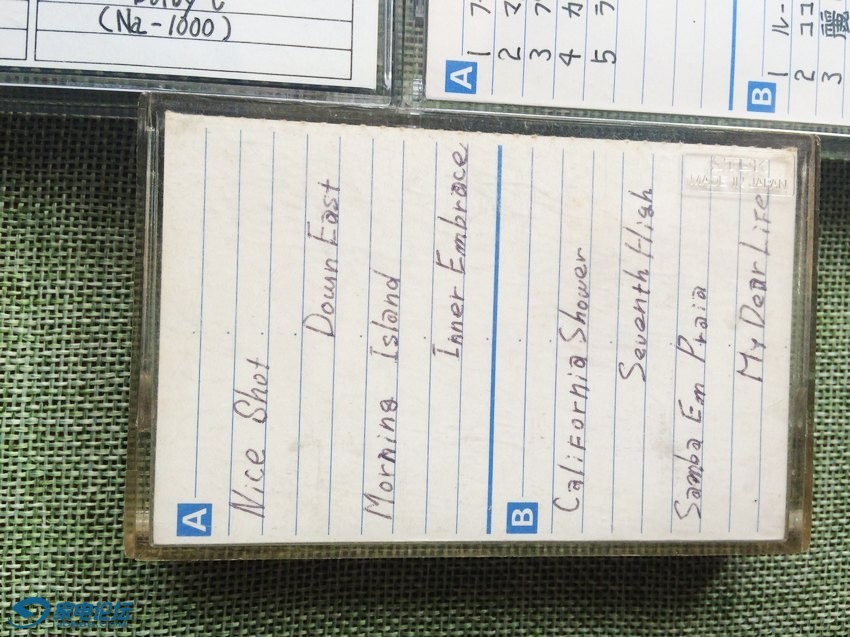 (Na-1000)
A
1
2
3
4
5
B
1 ルー
2 ココ
3 麗
A
Nice Shot
Down East
Morning Island
Inner Embrace
B
California Shower
Seventh High
Samba Em Praia
My Dear Life